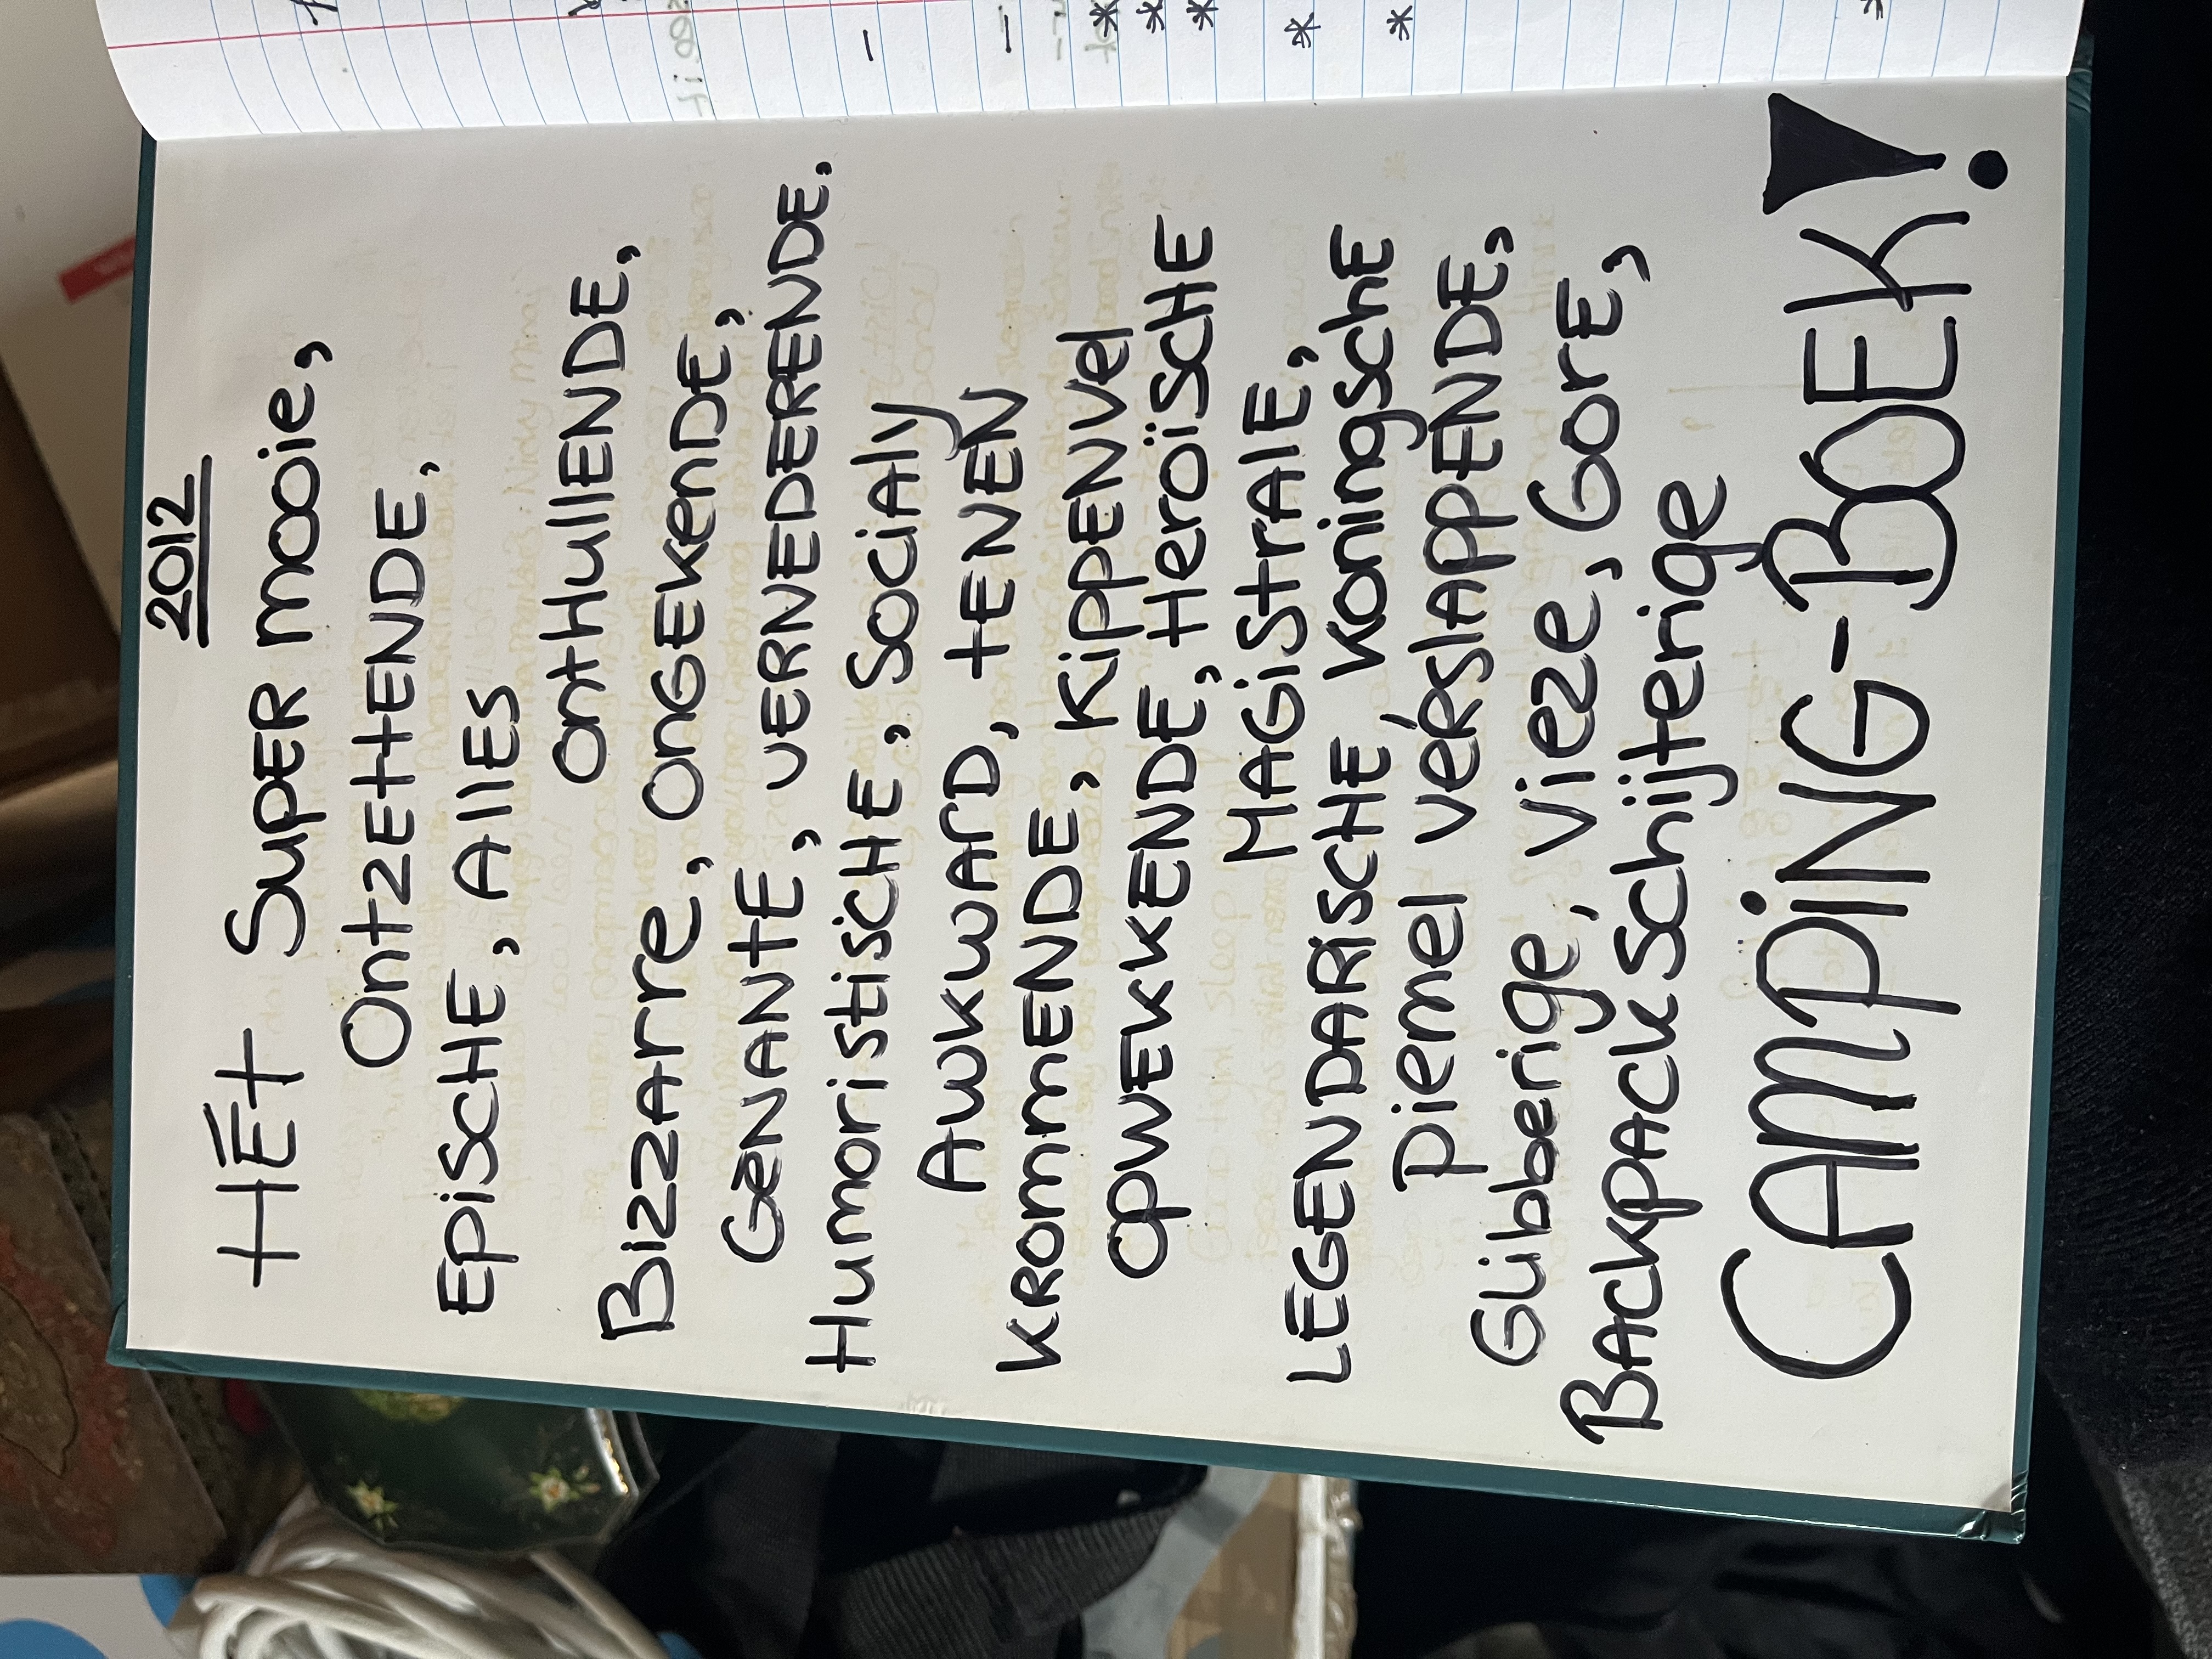 2012
HÉT SUPER mooie,
ONTZETTENDE,
EPISCHE, AllES
ONTHullENDE,
BizzArre, ONGEKENDE,
GENANTE, VERNEDERENDE.
Humoristische, Socialy
AWKWARD, TENEN
KROMMENDE, KIPPENVEl
OPWEKKENDE, HEROÏSCHE
MAGISTRALE,
LEGENDARISCHE, Koningsche
Piemel VERSLAPPENDE,
Glibberige, Vieze, Gore,
BACKPACK Schijterige
CAMPING-BOEK!